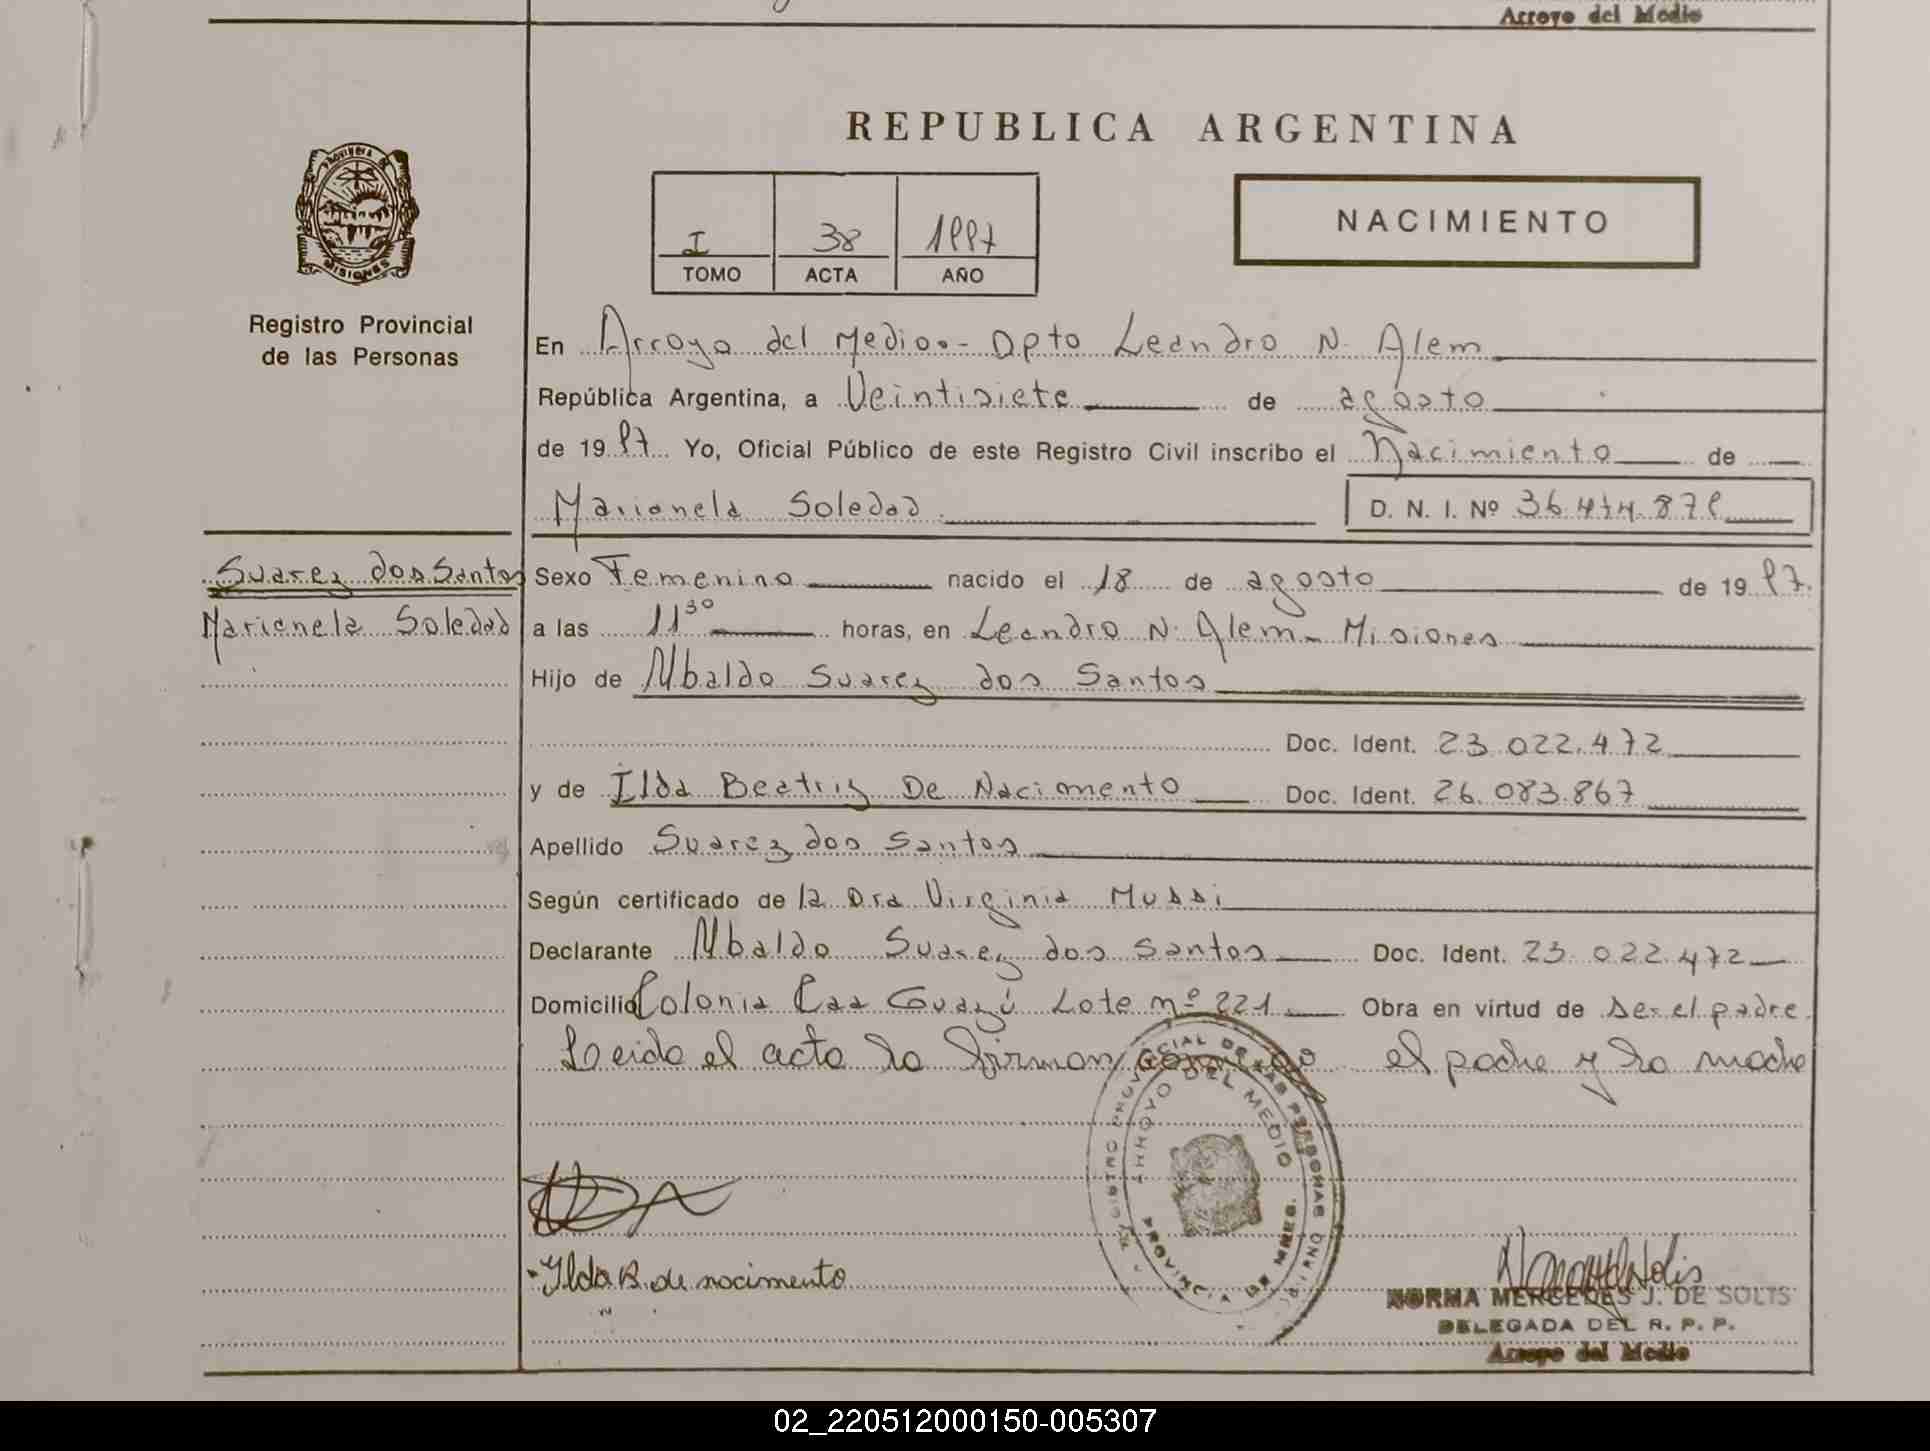 Arroyo del Medio
REPUBLICA ARGENTINA
PROVINCIA DE
MISIONES
Registro Provincial
de las Personas
I 38 1997
TOMO ACTA AÑO
NACIMIENTO
En Arroyo del Medio.- Dpto Leandro N. Alem
República Argentina, a Veintisiete de agosto
de 1997 Yo, Oficial Público de este Registro Civil inscribo el Nacimiento de
Marianela Soledad D. N. I. Nº 36.474.879
Suarez dos Santos
Marianela Soledad
Sexo Femenino nacido el 18 de agosto de 1997.
a las 11³⁰ horas, en Leandro N. Alem - Misiones
Hijo de Ubaldo Suarez dos Santos
Doc. Ident. 23.022.472
y de Ilda Beatriz De Nacimento Doc. Ident. 26.083.867
Apellido Suarez dos Santos
Según certificado de la Dra Virginia Mussi
Declarante Ubaldo Suarez dos Santos Doc. Ident. 23.022.472
Domicilio Colonia Caa Guazú Lote nº 221 Obra en virtud de ser el padre.
Leida el acta la firman conmigo el padre y la madre
REGISTRO PROVINCIAL DE LAS PERSONAS
ARROYO DEL MEDIO
PROVINCIA DE MNES.
Ilda B. de nacimento
NORMA MERCEDES J. DE SOLIS
DELEGADA DEL R. P. P.
Arroyo del Medio
02_220512000150-005307